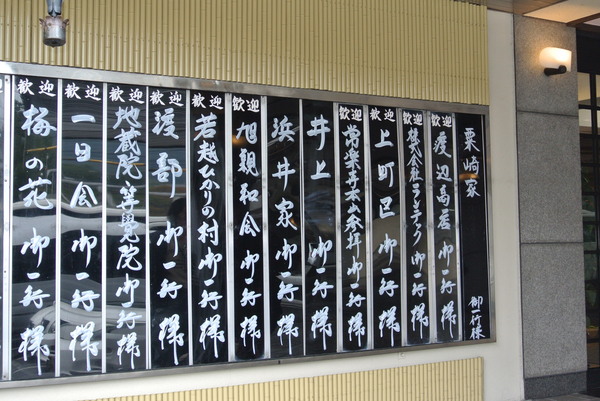 粟崎家 御一行様
歓迎 渡辺高居 御一行様
歓迎 株式会社ランテック 御一行様
歓迎 上町区 御一行様
歓迎 常楽寺本山参拝 御一行様
井上 御一行様
浜井家 御一行様
歓迎 旭親和会 御一行様
歓迎 若越ひかりの村 御一行様
歓迎 渡部 御一行様
歓迎 地蔵院 等覺院 御一行様
歓迎 一日会 御一行様
歓迎 梅の花 御一行様